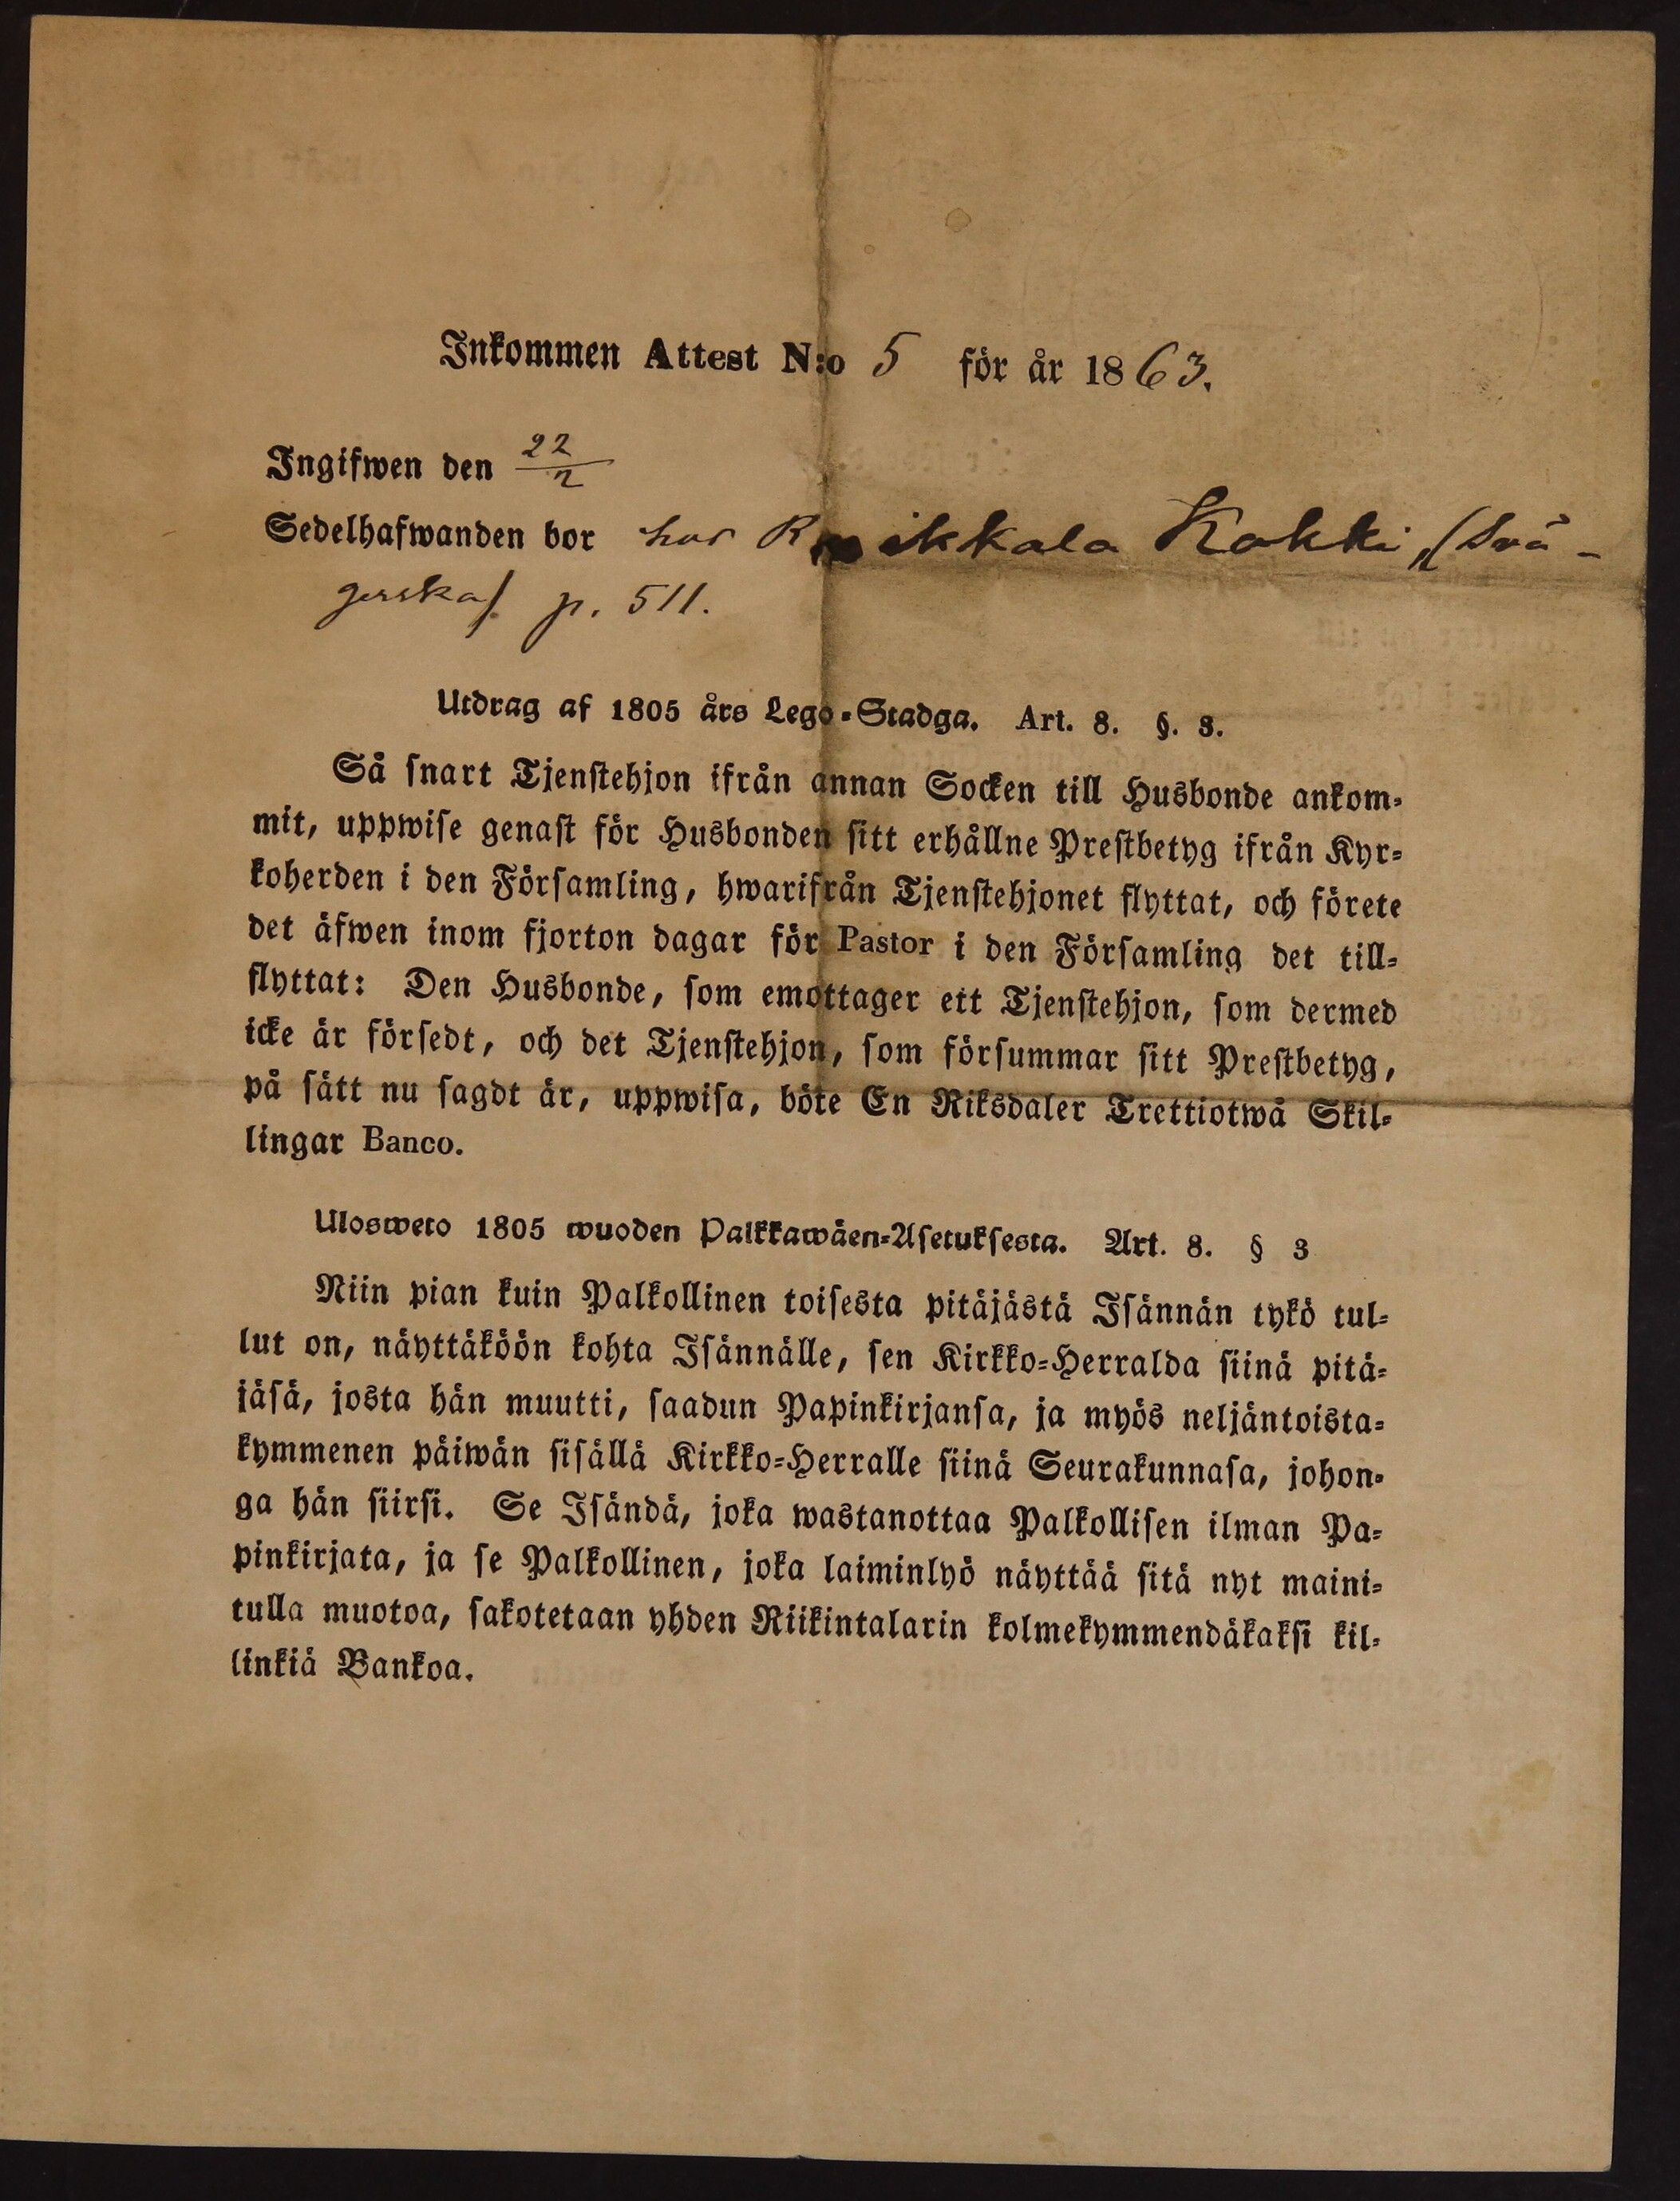 Inkommen Attest N:o 5 för år 1863.
Ingifwen den 22/2
Sedelhafwanden bor hos Kokki, (Svä-
gerska). p. 511.
Utdrag af 1805 års Lego-Stadga. Art. 8. §. 3.
Så snart Tjenstehjon ifrån annan Socken till Husbonde ankom-
mit, uppwise genast för Husbonden sitt erhållne Prestbetyg ifrån Kyr-
koherden i den Församling, hwarifrån Tjenstehjonet flyttat, och förete
det äfwen inom fjorton dagar för Pastor i den Församling det till-
flyttat: Den Husbonde, som emottager ett Tjenstehjon, som dermed
icke är försedt, och det Tjenstehjon, som försummar sitt Prestbetyg,
på sätt nu sagdt är, uppwisa, böte En Riksdaler Trettiotwå Skil-
lingar Banco.
Ulosweto 1805 wuoden Palkkawäen-Asetuksesta. Art. 8. § 3
Niin pian kuin Palkollinen toisesta pitäjästä Isännän tykö tul-
lut on, näyttäköön kohta Isännälle, sen Kirkko-Herralda siinä pitä-
jäsä, josta hän muutti, saadun Papinkirjansa, ja myös neljäntoista-
kymmenen päiwän sisällä Kirkko-Herralle siinä Seurakunnasa, johon-
ga hän siirsi. Se Isändä, joka wastanottaa Palkollisen ilman Pa-
pinkirjata, ja se Palkollinen, joka laiminlyö näyttää sitä nyt maini-
tulla muotoa, sakotetaan yhden Riikintalarin kolmekymmendäkaksi kil-
linkiä Bankoa.